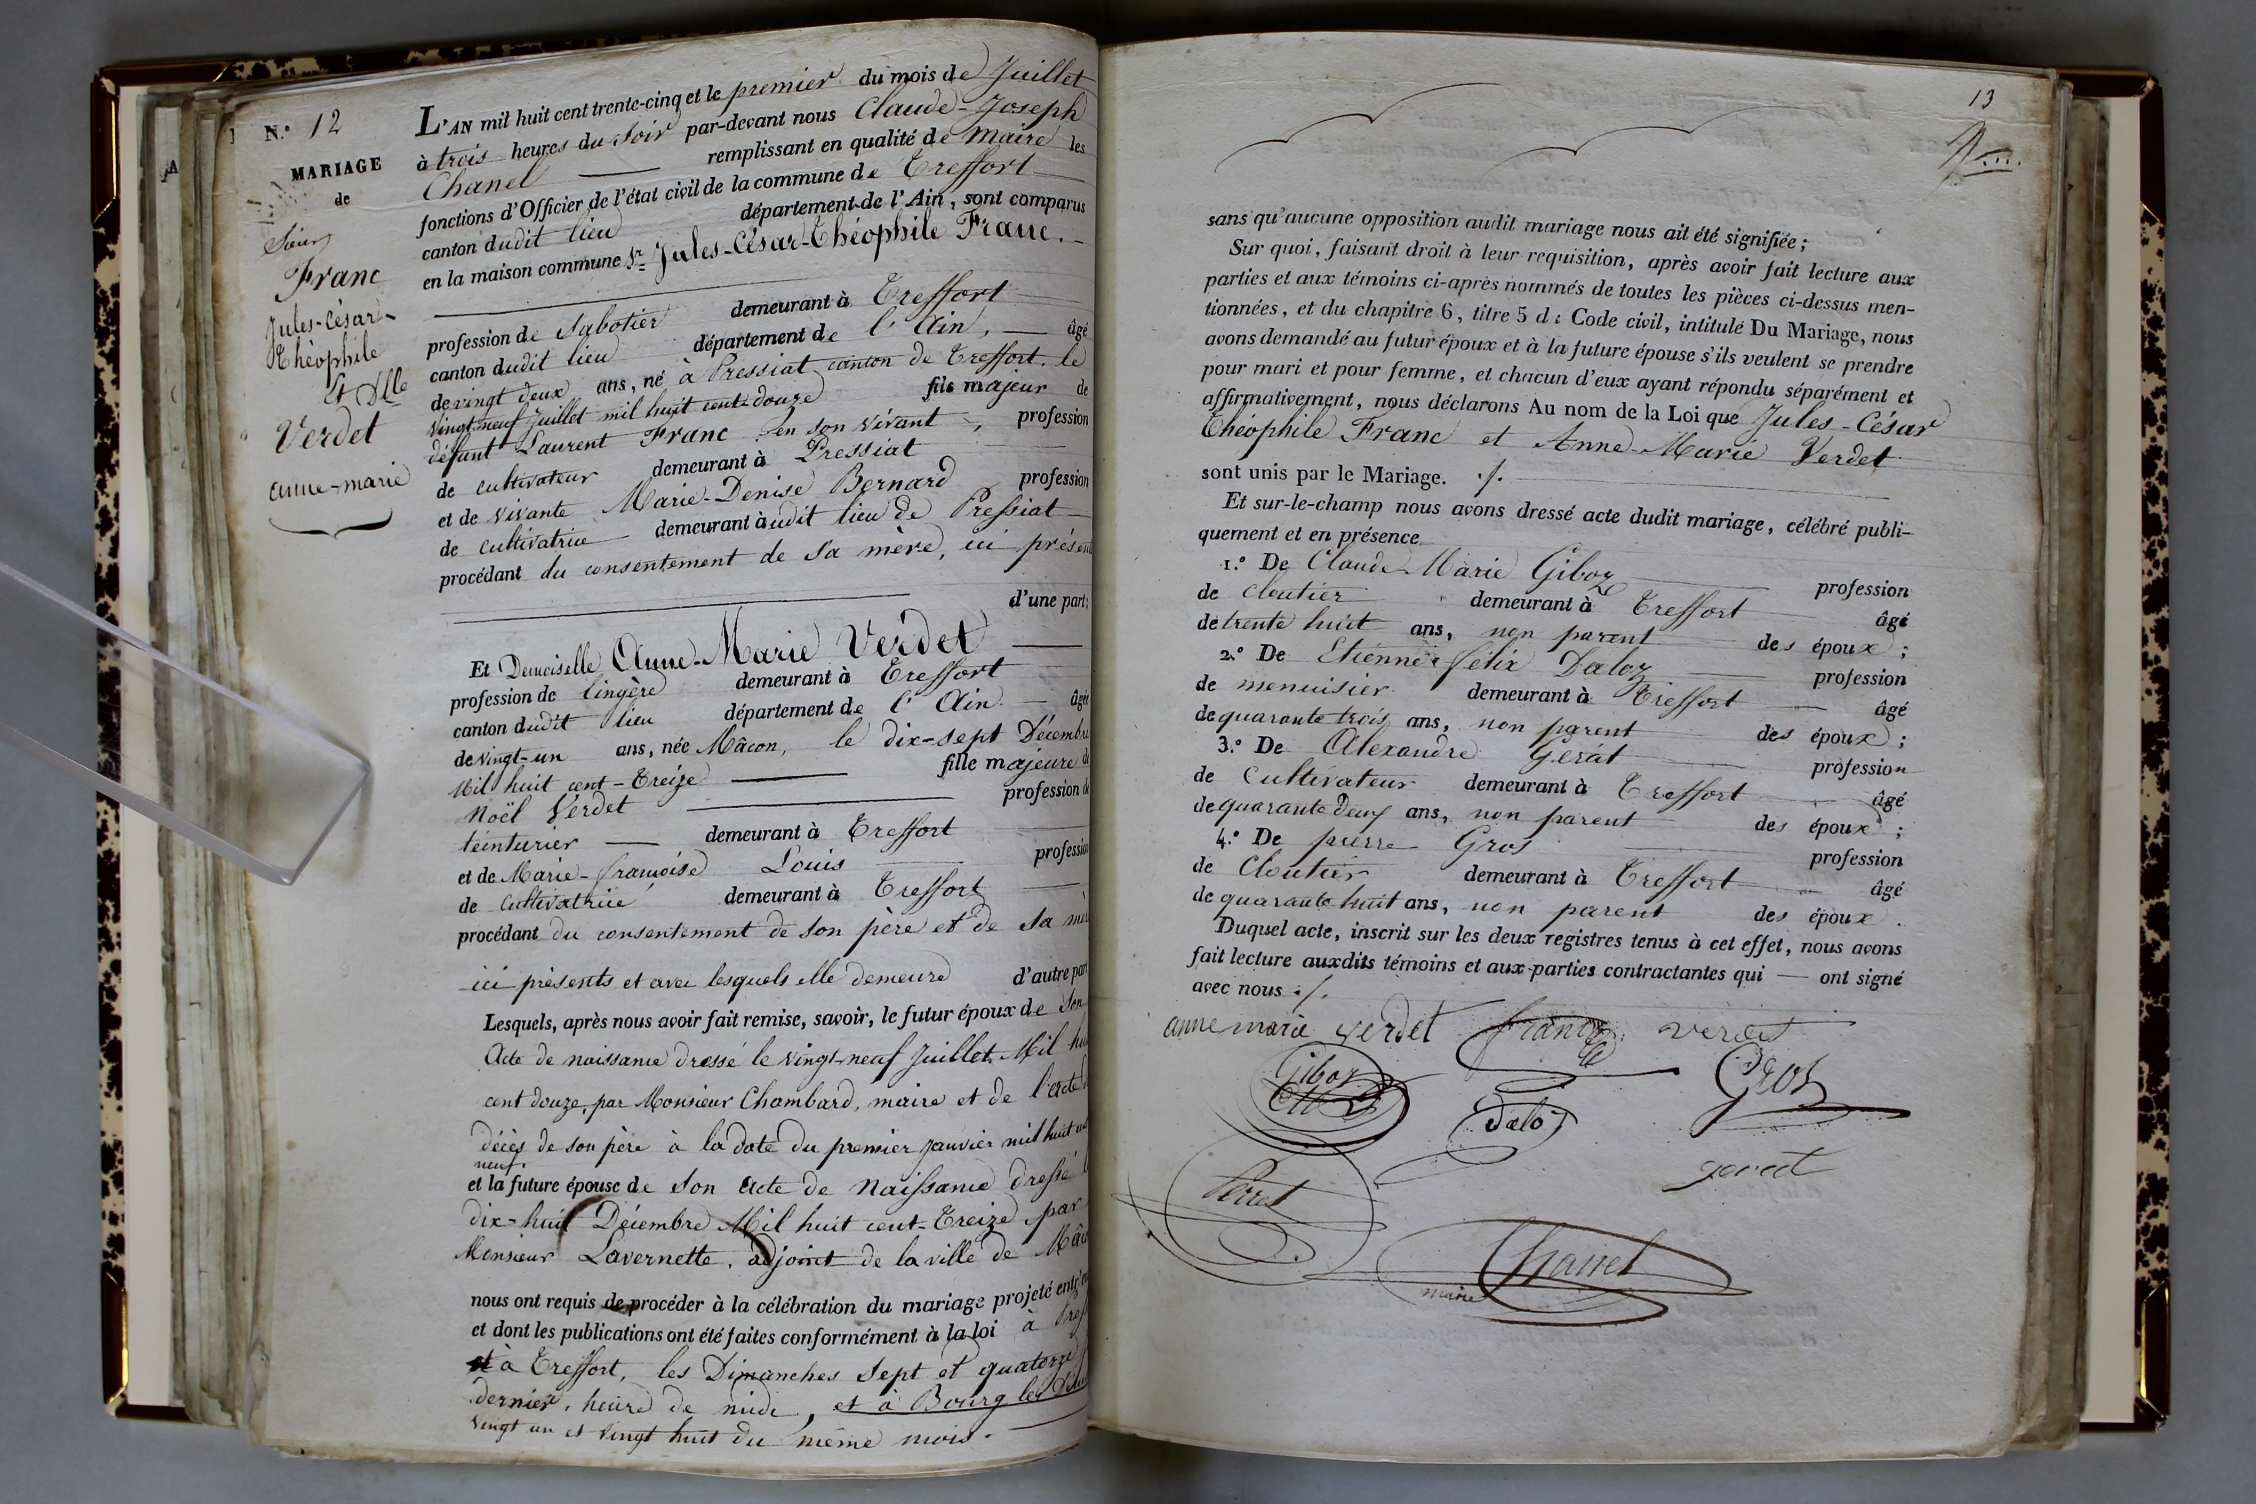 N.º 12
MARIAGE
de
Sieur
Franc
Jules-César-
Théophile
Et Dlle
Verdet
anne-marie
L'AN mil huit cent trente-cinq et le premier du mois de Juillet
à trois heures du soir par-devant nous Claude-Joseph
Chanel remplissant en qualité de maire les
fonctions d'Officier de l'état civil de la commune de Treffort
canton dudit lieu département de l'Ain, sont comparus
en la maison commune Sr Jules-César-Théophile Franc.
profession de Sabotier demeurant à Treffort
canton dudit lieu département de l'Ain, âgé
de vingt deux ans, né à Pressiat canton de Treffort. le
vingt-neuf Juillet mil huit cent-douze fils majeur de
défunt Laurent Franc en son vivant, profession
de cultivateur demeurant à Pressiat
et de vivante Marie-Denise Bernard profession
de cultivatrice demeurant à udit lieu de Pressiat
procédant du consentement de sa mère, ici présent
d'une part;
Et Demoiselle Anne-Marie Verdet
profession de lingère demeurant à Treffort
canton dudit lieu département de l'Ain âgée
de vingt-un ans, née Mâcon, le dix-sept Décembre
Mil huit cent-Treize fille majeure de
Noël Verdet profession de
teinturier demeurant à Treffort
et de Marie-françoise Louis profession
de cultivatrice demeurant à Treffort
procédant du consentement de son père et de sa mèr
ici présents et avec lesquels elle demeure d'autre part
Lesquels, après nous avoir fait remise, savoir, le futur époux de son
Acte de naissance dressé le vingt-neuf Juillet Mil hu
cent douze, par Monsieur Chambard, maire et de l'acte d
décès de son père à la date du premier Janvier mil huit
neuf.
et la future épouse de son acte de Naissance dressé l
dix-huit Décembre Mil huit cent-Treize par
Monsieur Lavernette, adjoint de la ville de Mâc
nous ont requis de procéder à la célébration du mariage projeté entr'eu
et dont les publications ont été faites conformément à la loi à Pres
et à Treffort, les Dimanches sept et quatorze
dernier, heure de midi, et à Bourg les Dim
vingt un et vingt huit du même mois.
13
sans qu'aucune opposition audit mariage nous ait été signifiée;
Sur quoi, faisant droit à leur requisition, après avoir fait lecture aux
parties et aux témoins ci-après nommés de toutes les pièces ci-dessus men-
tionnées, et du chapitre 6, titre 5 du Code civil, intitulé Du Mariage, nous
avons demandé au futur époux et à la future épouse s'ils veulent se prendre
pour mari et pour femme, et chacun d'eux ayant répondu séparément et
affirmativement, nous déclarons Au nom de la Loi que Jules-César
Théophile Franc et Anne-Marie Verdet
sont unis par le Mariage. ./.
Et sur-le-champ nous avons dressé acte dudit mariage, célébré publi-
quement et en présence
1.º De Claude Marie Giboz profession
de cloutier demeurant à Treffort âgé
de trente huit ans, non parent des époux;
2.º De Etienne félix Daloz profession
de menuisier demeurant à Treffort âgé
de quarante trois ans, non parent des époux;
3.º De Alexandre Gerat profession
de cultivateur demeurant à Treffort âgé
de quarante deux ans, non parent des époux;
4.º De pierre Gros profession
de Cloutier demeurant à Treffort âgé
de quarante huit ans, non parent des époux.
Duquel acte, inscrit sur les deux registres tenus à cet effet, nous avons
fait lecture auxdits témoins et aux parties contractantes qui — ont signé
avec nous ./.
anne marie verdet franc verdet
Giboz
CM Gros
Daloz
gerat
Perret
Chanel
maire